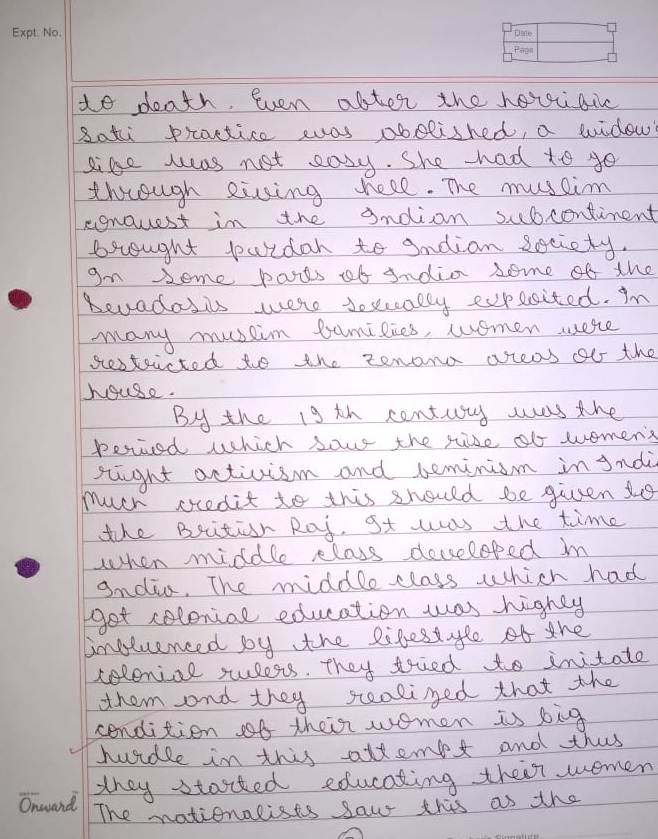 Expt. No.
Date
Page
to death. Even after the horrific
sati practice was abolished, a widow's
life was not easy. She had to go
through living hell. The muslim
conquest in the Indian subcontinent
brought purdah to Indian society.
In some parts of India some of the
Devadasis were sexually exploited. In
many muslim families, women were
restricted to the zenana areas of the
house.
By the 19th century was the
period which saw the rise of women's
right activism and feminism in Indi
Much credit to this should be given to
the British Raj. It was the time
when middle class developed in
India. The middle class which had
got colonial education was highly
influenced by the lifestyle of the
colonial rulers. They tried to initate
them and they realized that the
condition of their women is big
hurdle in this attempt and thus
they started educating their women
Onward
The nationalists saw this as the